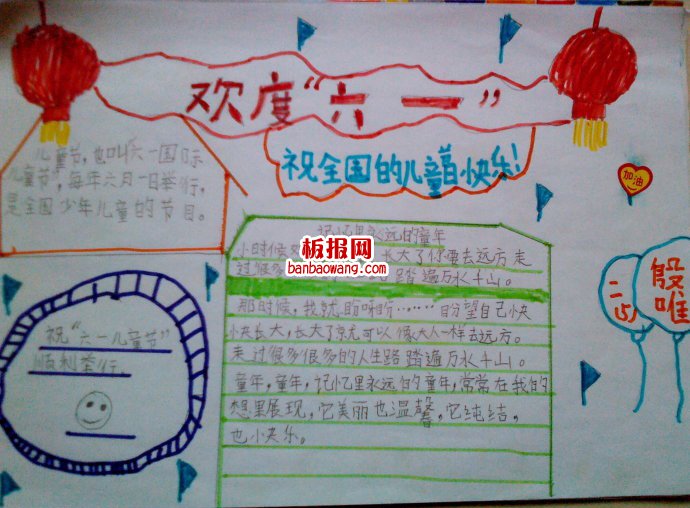 欢度“六一”
祝全国的儿童节快乐!
儿童节,也叫六一国际
儿童节,每年六月一日举行,
是全国少年儿童的节日。
加油
记忆里永远的童年
小时候
长大了你要去远方走
过很多
踏遍万水千山。
板报网
banbaowang.com
那时候,我就盼呀盼,……盼望自己快
快长大,长大了京尤可以像大人一样去远方。
走过很多很多的人生路踏遍万水千山。
童年,童年,记忆里永远的童年,常常在我的
想里展现,它美丽也温馨,它纯结,
也小快乐。
祝“六一儿童节”
顺利举行,
二
唯